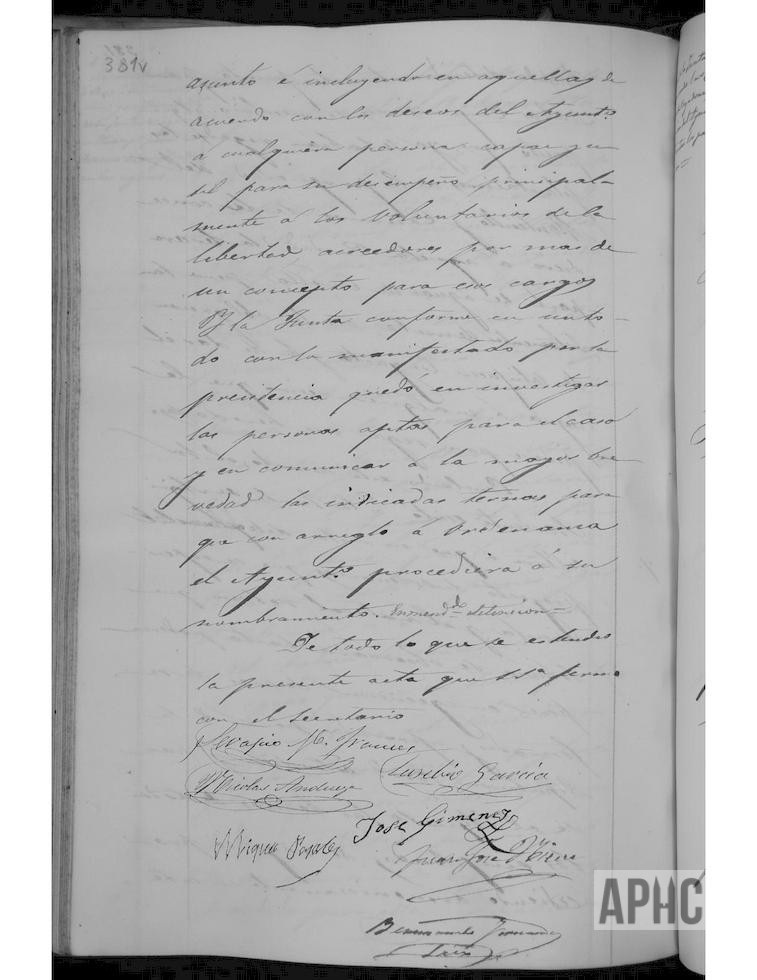 381v
asunto é incluyendo en aquellas de
acuerdo con los deseos del Ayunt.º
á cualquiera persona capaz y u
til para su desempeño principal-
mente á los Voluntarios de la
libertad acreedores por mas de
un concepto para esos cargos
Y la Junta conforme en un to-
do con lo manifestado por la
presidencia quedó en investigar
las personas aptas para el caso
y en comunicar á la mayor bre
vedad las indicadas ternas para
que con arreglo á Ordenanza
el Ayunt.º procediera á su
nombramiento.
De todo lo que se estendio
la presente acta que SSª firmo
con el Secretario
Serapio M.
Nicolas Andueza Eusebio Garcia
Jose Gimenez
Miguel Juan Jose
APHC